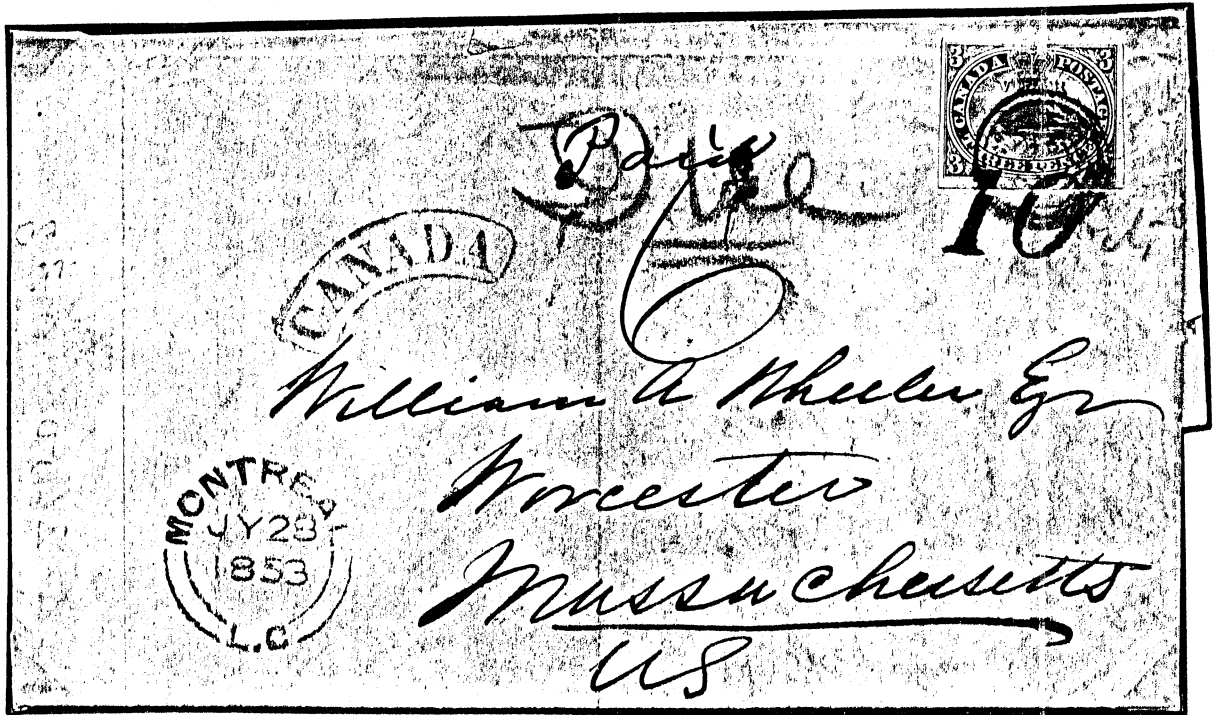 3 CANADA POSTAGE 3
3 THREE PENCE 3
Paid
Due
6
10
CANADA
William A Wheeler Esqr
Worcester
Massachusetts
US
MONTREAL
JY 28
1853
L.C